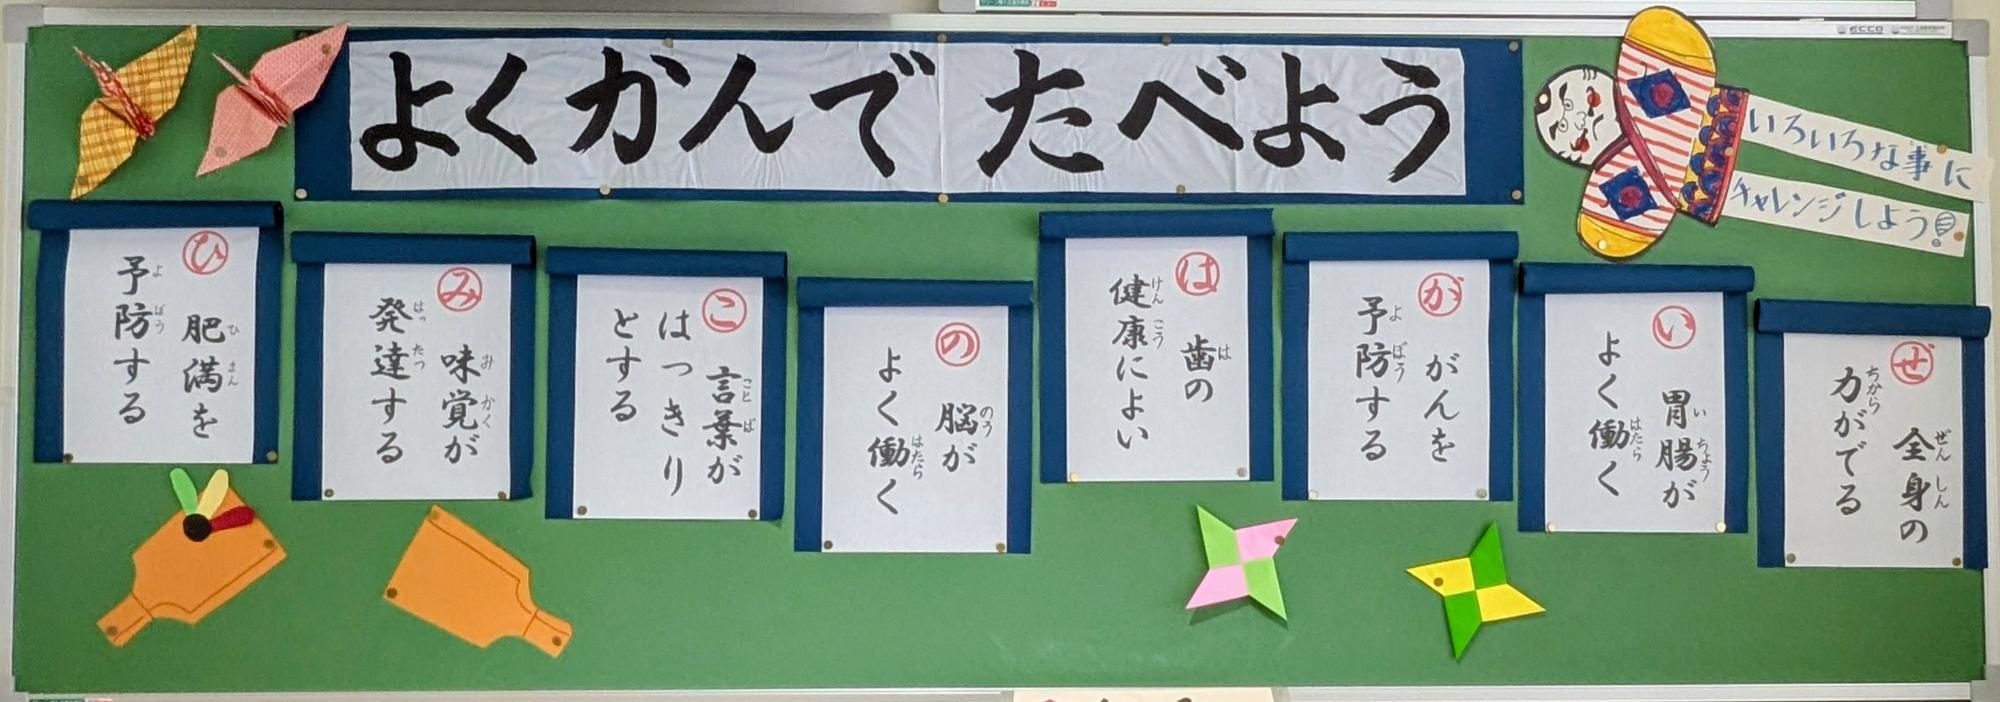 よくかんで たべよう
いろいろな事に
チャレンジしよう!
ひ 肥満を
予防する
み 味覚が
発達する
こ 言葉が
はっきり
とする
の 脳が
よく働く
は 歯の
健康によい
が がんを
予防する
い 胃腸が
よく働く
ぜ 全身の
力がでる